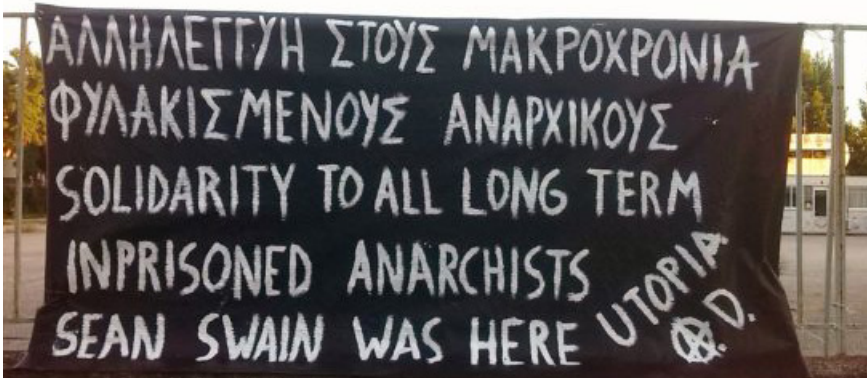 ΑΛΛΗΛΕΓΓΥΗ ΣΤΟΥΣ ΜΑΚΡΟΧΡΟΝΙΑ
ΦΥΛΑΚΙΣΜΕΝΟΥΣ ΑΝΑΡΧΙΚΟΥΣ
SOLIDARITY TO ALL LONG TERM
INPRISONED ANARCHISTS
SEAN SWAIN WAS HERE
UTOPIA
A.D.